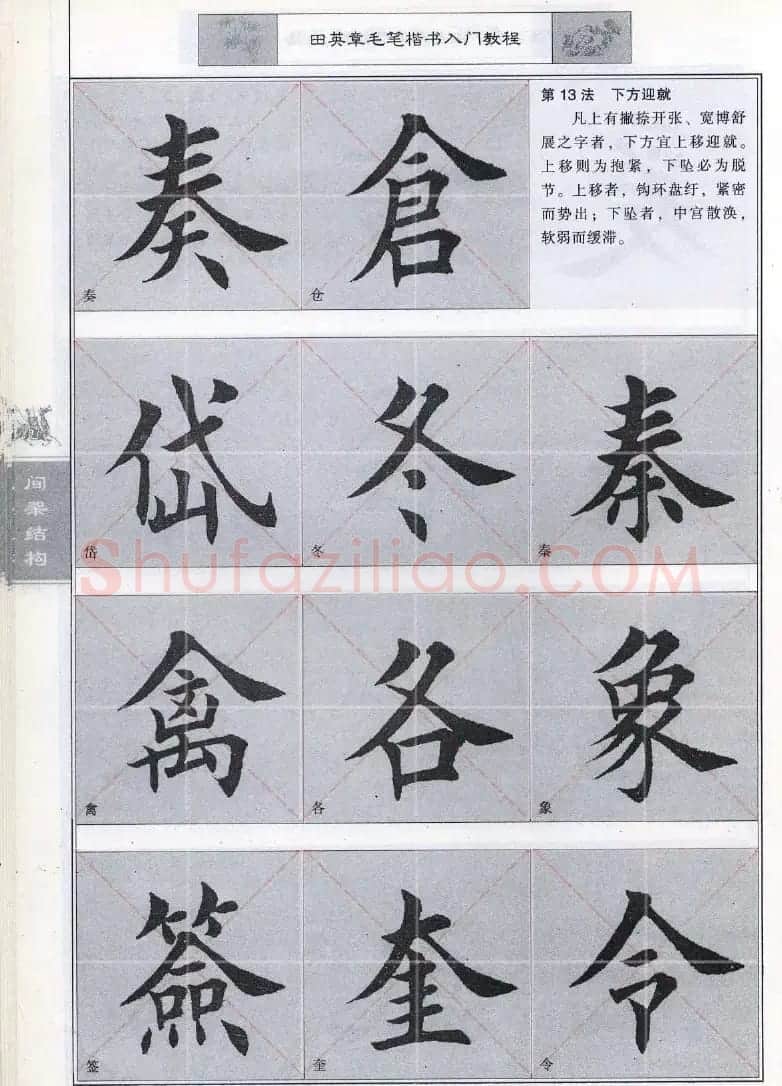 田英章毛笔楷书入门教程
第13法 下方迎就
凡上有撇捺开张、宽博舒
展之字者，下方宜上移迎就。
上移则为抱紧，下坠必为脱
节。上移者，钩环盘纡，紧密
而势出；下坠者，中宫散涣，
软弱而缓滞。
奏 倉
奏 仓
岱 冬 秦
岱 冬 秦
禽 各 象
禽 各 象
簽 奎 令
签 奎 令
间架结构
Shufaziliao.COM